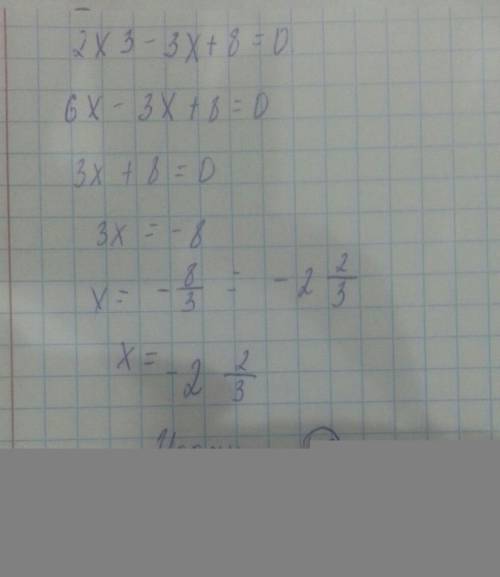 2x3 - 3x + 8 = 0
6x - 3x + 8 = 0
3x + 8 = 0
3x = -8
x = - 8/3 = - 2 2/3
x = - 2 2/3